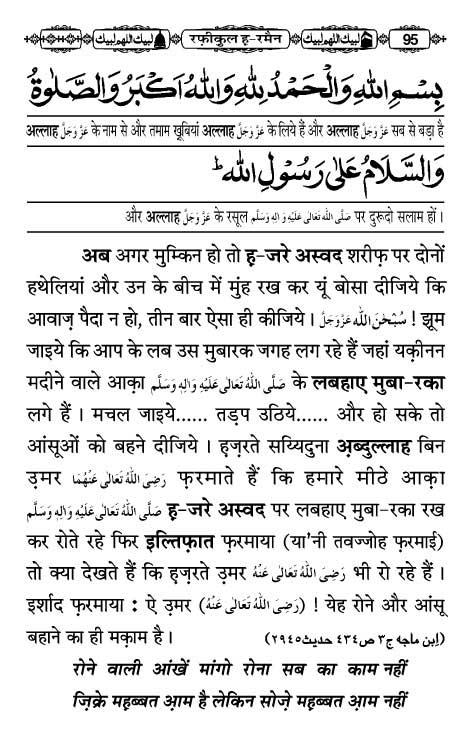 لبيك اللهم لبيك रफ़ीकुल ह़-रमैन لبيك اللهم لبيك 95
بِسْمِ اللهِ وَالْحَمْدُ لِلّٰهِ وَاللهُ اَكْبَرُ وَالصَّلٰوةُ
अल्लाह عَزَّوَجَلَّ के नाम से और तमाम ख़ूबियां अल्लाह عَزَّوَجَلَّ के लिये हैं और अल्लाह عَزَّوَجَلَّ सब से बड़ा है
وَالسَّلَامُ عَلٰى رَسُوْلِ اللهِ ط
और अल्लाह عَزَّوَجَلَّ के रसूल صَلَّى اللهُ تَعَالٰى عَلَيْهِ وَاٰلِهٖ وَسَلَّم पर दुरूदो सलाम हों ।
अब अगर मुम्किन हो तो ह़-जरे अस्वद शरीफ़ पर दोनों
हथेलियां और उन के बीच में मुंह रख कर यूं बोसा दीजिये कि
आवाज़ पैदा न हो, तीन बार ऐसा ही कीजिये । سُبْحٰنَ اللّٰه عَزَّوَجَلَّ ! झूम
जाइये कि आप के लब उस मुबारक जगह लग रहे हैं जहां यक़ीनन
मदीने वाले आक़ा صَلَّى اللهُ تَعَالٰى عَلَيْهِ وَاٰلِهٖ وَسَلَّم के लबहाए मुबा-रका
लगे हैं । मचल जाइये...... तड़प उठिये...... और हो सके तो
आंसूओं को बहने दीजिये । ह़ज़रते सय्यिदुना अ़ब्दुल्लाह बिन
उ़मर رَضِىَ اللهُ تَعَالٰى عَنْهُمَا फ़रमाते हैं कि हमारे मीठे आक़ा
صَلَّى اللهُ تَعَالٰى عَلَيْهِ وَاٰلِهٖ وَسَلَّم ह़-जरे अस्वद पर लबहाए मुबा-रका रख
कर रोते रहे फिर इल्तिफ़ात फ़रमाया (या'नी तवज्जोह फ़रमाई)
तो क्या देखते हैं कि ह़ज़रते उ़मर رَضِىَ اللهُ تَعَالٰى عَنْهُ भी रो रहे हैं ।
इर्शाद फ़रमाया : ऐ उ़मर (رَضِىَ اللهُ تَعَالٰى عَنْهُ) ! येह रोने और आंसू
बहाने का ही मक़ाम है । (اِبن ماجه ج٣ ص٤٣٤ حديث٢٩٤٥)
रोने वाली आंखें मांगो रोना सब का काम नहीं
ज़िक्रे मह़ब्बत आ़म है लेकिन सोज़े मह़ब्बत आ़म नहीं